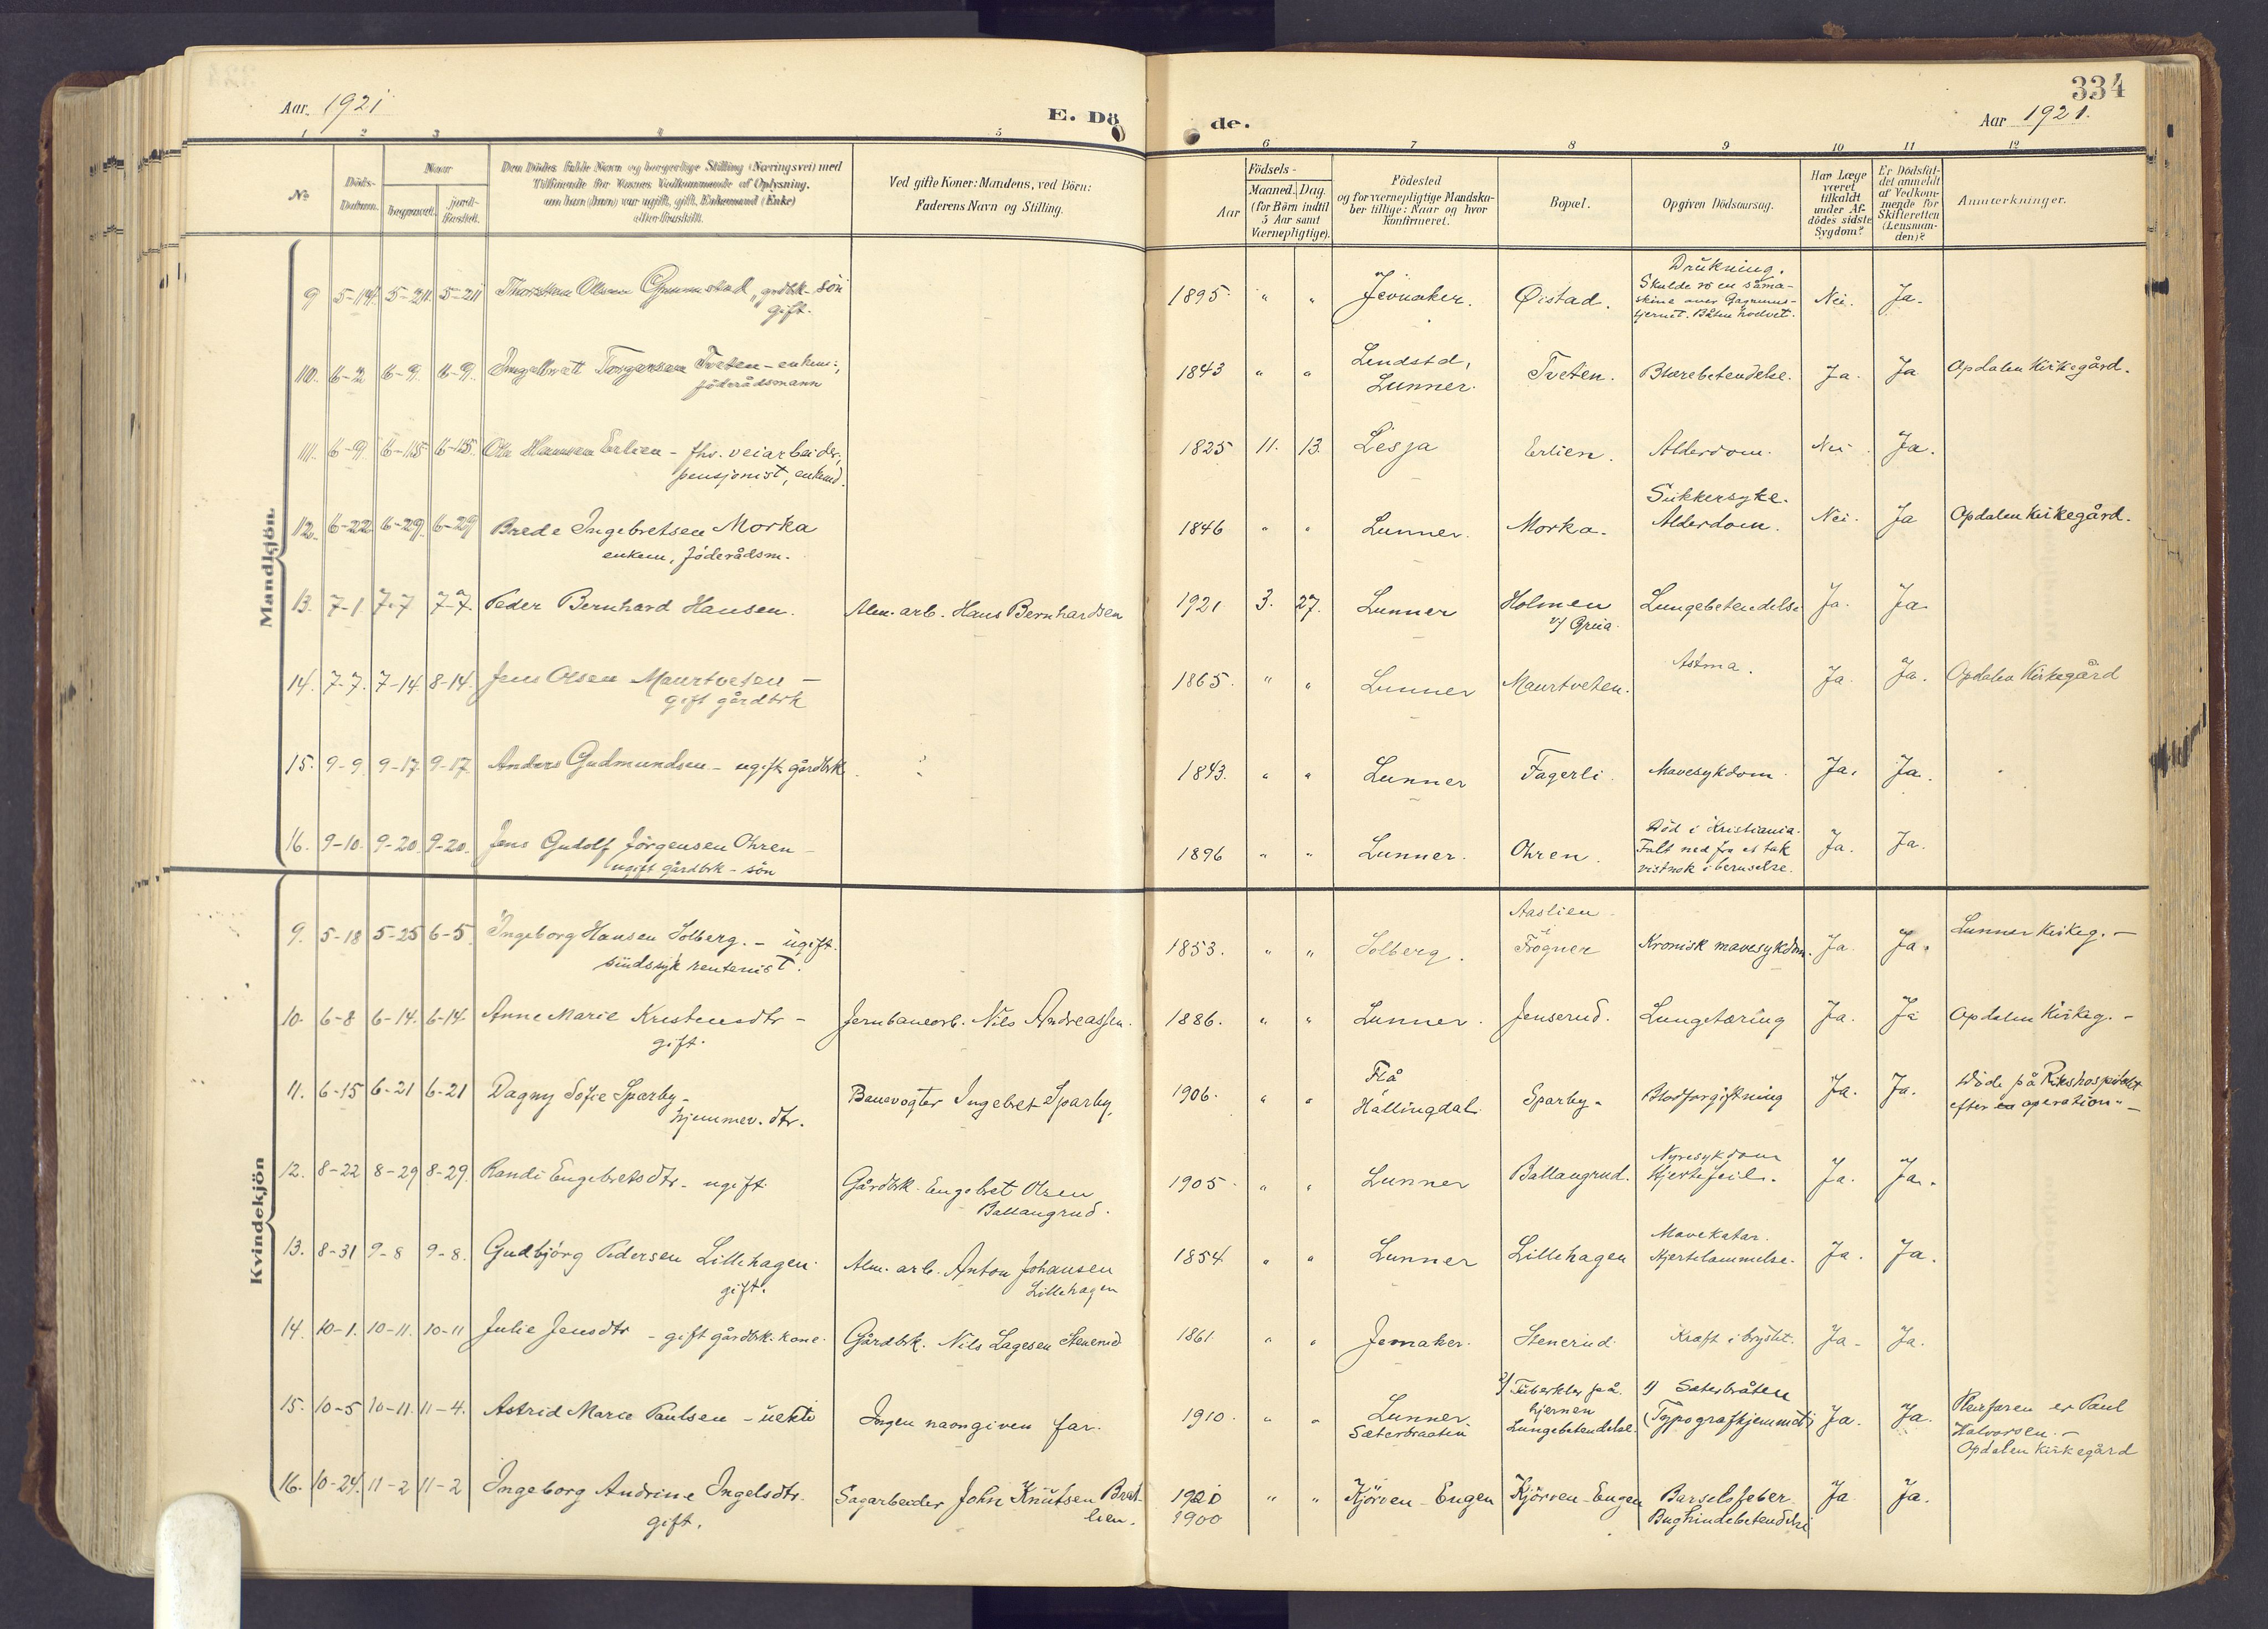 334
Aar. 1921
E. Dö
de.
Aar 1921.
1 2 3 4 5 6 7 8 9 10 11 12
No
Döds-
Datum.
Naar
begravet.
jord-
fæstet.
Den Dödes fulde Navn og borgerlige Stilling (Næringsvei) med
Tilføiende for Voxnes Vedkommende af Oplysning,
om hun (han) var ugift, gift, Enkemand (Enke)
eller fraskilt.
Ved gifte Koner: Mandens, ved Börn:
Faderens Navn og Stilling.
Aar
Födsels-
Maaned. Dag.
(for Börn indtil
5 Aar samt
Værnepligtige).
Födested
og for værnepligtige Mandska-
ber tillige: Naar og hvor
konfirmeret.
Bopæl.
Opgiven Dödsaarsag.
Har Læge
været
tilkaldt
under Af-
dödes sidste
Sygdom?
Er Dödsfal-
det anmeldt
af Vedkom-
mende for
Skifteretten
(Lensman-
den)?
Anmærkninger.
Mandkjön.
9 5-14. 5-21. 5-21 Thorstein Olsen Grinnestad, grdbk-sön
gift.
1895. " " Jevnaker. Øistad. Drukning.
Skulde ro en såma-
skine over
tjernet. Båten hvelvet.
Nei. Ja.
10. 6-2 6-9. 6-9. Ingebrett Torgersen Tveten - enkem.,
föderådsmann
1843 " " Lendstd,
Lunner. Tveten. Blærebetendelse. Ja. Ja Opdalen Kirkegård.
11. 6-9. 6-15 6-15. Ole Hansen Erlien - fhv. veiarbeider,
pensjonist, enkemd.
1825 11. 13. Lesja Erlien. Alderdom. Nei. Ja.
12. 6-22 6-29. 6-29 Brede Ingebretsen Morka
enkem, föderådsm.
1846 " " Lunner. Morka. Sukkersyke.
Alderdom. Nei. Ja Opdalen Kirkegård.
13. 7-1. 7-7 7-7. Peder Bernhard Hansen. Alm. arb. Hans Bernhardsen
1921 3. 27. Lunner Holmen
v/ Grua. Lungebetendelse Ja. Ja.
14. 7-7. 7-14 8-14. Jens Olsen Maurtveten -
gift gårdbrk
1865. " " Lunner Maurtveten. Astma. Ja. Ja. Opdalen Kirkegård
15. 9-9. 9-17. 9-17. Anders Gudmundsen - ugift gårdbrk.
1843. " " Lunner Fagerli. Mavesykdom. Ja. Ja.
16. 9-10. 9-20. 9-20. Jens Gudolf Jörgensen Ohren -
ugift gårdbrk - sön
1896 " " Lunner. Ohren. Död i Kristiania.
Falt ned fra et tak
vistnok i beruselse. Ja. Ja.
Kvindekjön
9. 5-18 5-25 6-5. Ingeborg Hansen Solberg. - ugift.
sindssyk rentenist.
1853. " " Solberg. Aaslien
i
Fögner Kronisk mavesykdom. Ja Ja. Lunner Kirkeg. -
10. 6-8 6-14. 6-14. Anne Marie Kristensdtr -
gift.
Jernbanearb. Nils Andreassen. 1886. " " Lunner. Jenserud. Lungetæring Ja. Ja Opdalen Kirkeg. -
11. 6-15 6-21 6-21 Dagny Sofie Sparby -
hjemmev. dtr.
Banevogter Ingebret Sparby. 1906. " " Flå
Hallingdal. Sparby. Blodforgiftning Ja. Ja. Döde på Rikshospitalet
efter en operation. -
12. 8-22 8-29 8-29. Randi Engebretsdtr. - ugift.
Gårdbrk. Engebret Olsen
Ballangrud.
1905. " " Lunner Ballangrud. Nyresykdom
Hjertefeil. Ja. Ja.
13. 8-31 9-8 9-8. Gudbjörg Pedersen Lillehagen.
gift.
Alm. arb. Anton Johansen
Lillehagen
1854 " " Lunner Lillehagen Mavekatar.
Hjertelammelse. Ja. Ja.
14. 10-1. 10-11. 10-11 Julie Jensdtr - gift gårdbk. kone. Gårdbk. Nils Lagesen Stenerud
1861. " " Jevnaker. Stenerud. Kræft i brystet. Ja. Ja.
15. 10-5 10-11. 11-4. Astrid Marie Paulsen - uekte Ingen navngiven far.
1910. " " Lunner
Sæterbraaten 2) Tuberkler på
hjernen
Lungebetendelse. 1) Sæterbråten
(Typografhjemmet) Ja. Ja. Pleiefaren er Paul
Halvorsen. -
Opdalen Kirkegård
16. 10-24. 11-2 11-2 Ingeborg Andrine Ingelsdtr.
gift.
Sagarbeider John Knutsen Brat-
lien.
1920
1900 " " Kjörven-Engen Kjörven-Engen Barselsfeber
Bughindebetendelse Ja Ja.